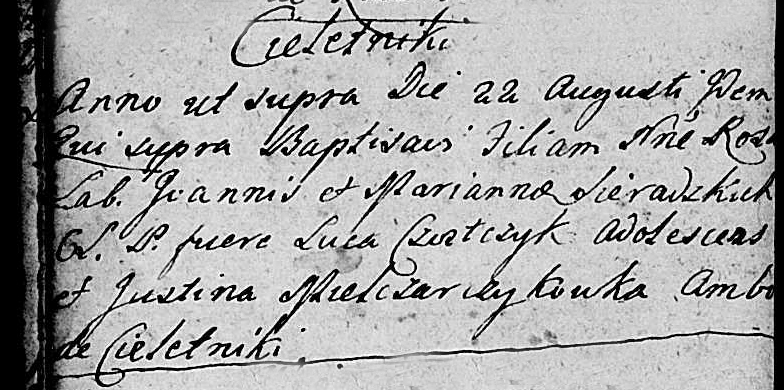 Cieletniki
Anno ut supra Die 22 Augusti Idem
Qui supra Baptisavi Filiam Nne Rosa
Lab. Joannis et Mariannæ Sieradzkich
GL. P. fuere Luca Czortczyk Adolescens
et Justina Mielczarczykowka Ambo
de Cieletniki.